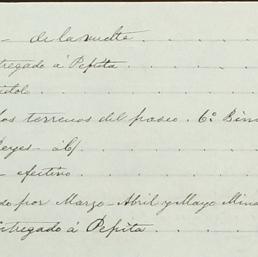 - de la vuelta
tregado á Pepita
los terrenos del paseo. 6º Bim
Reyes - á c/
- efectivo
do por Marzo - Abril y Mayo Mina
Entregado á Pepita